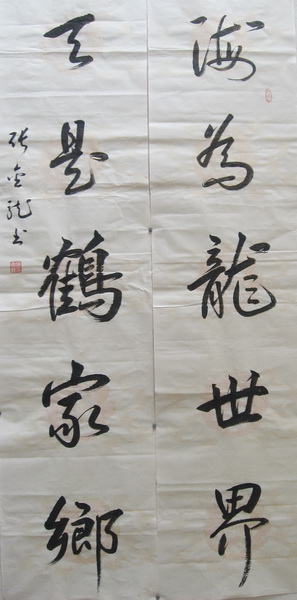 海為龍世界
天是鶴家鄉
張金龍书